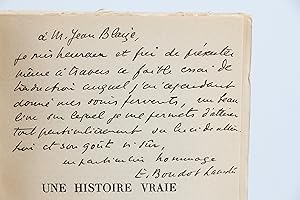 à M. Jean Blaize,
je suis heureux et fier de présenter
même à travers ce faible essai de
traduction auquel j'ai cependant
donné mes soins fervents, un beau
livre sur lequel je me permets d'attirer
tout particulièrement
et son goût si sûr,
en particulier hommage
E. Boudot-Lamotte
UNE HISTOIRE VRAIE